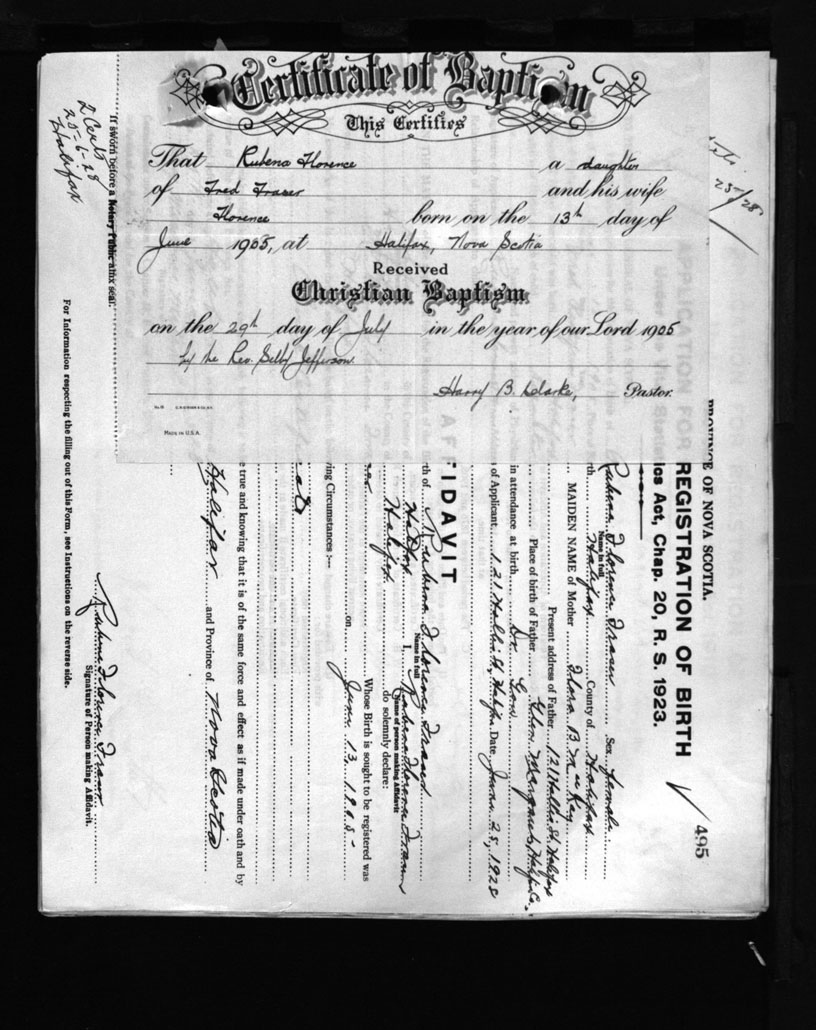 Certificate of Baptism
This Certifies
That Rubena Florence a daughter
of Fred Fraser and his wife
Florence born on the 13th day of
June 1905, at Halifax, Nova Scotia
Received
Christian Baptism
on the 29th day of July in the year of our Lord 1905
by the Rev. Selby Jefferson.
Harry B. Clarke, Pastor.
No. 18
MADE IN U.S.A.
25/28
495
PROVINCE OF NOVA SCOTIA.
REGISTRATION OF BIRTH
ics Act, Chap. 20, R. S. 1923.
Rubena Florence Fraser Sex Female
Name in full
rth Halifax County of Halifax
MAIDEN NAME of Mother Flora B
Present address of Father 121 Hollis St. Halifax
Place of birth of Father Glen Margaret, Halifax Co.
in attendance at birth Dr. Gow
of Applicant 121 Hollis St. Halifax Date June 25, 1928
IDAVIT
th of Rubena Florence Fraser
Name in full
Halifax I, Rubena Florence Fraser
Name of person making Affidavit
Halifax do solemnly declare:
Whose Birth is sought to be registered was
on June 13, 1905-
ing Circumstances:—
e true and knowing that it is of the same force and effect as if made under oath and by
Halifax and Province of Nova Scotia
Rubena Florence Fraser
Signature of Person making Affidavit.
"If sworn before a Notary Public affix seal.
For Information respecting the filling out of this Form, see Instructions on the reverse side.
2 Certs
25-6-28
Halifax